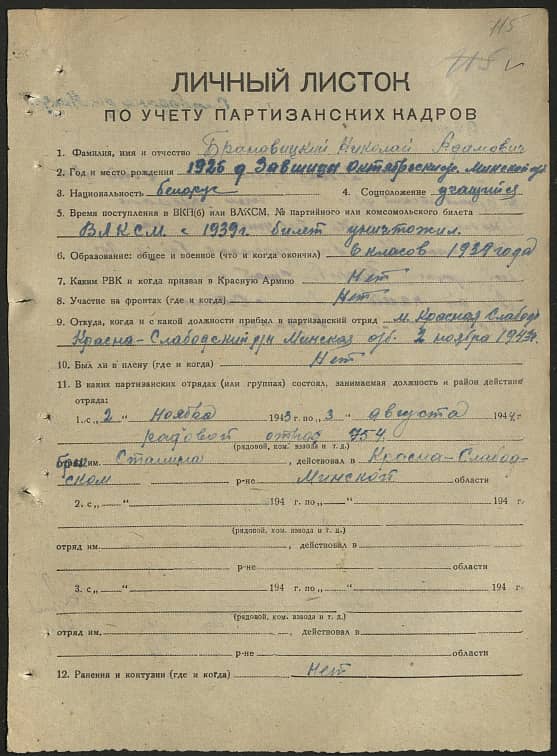 115
115
ЛИЧНЫЙ ЛИСТОК
ПО УЧЕТУ ПАРТИЗАНСКИХ КАДРОВ
1. Фамилия, имя и отчество Брановицкий Николай Адамович
2. Год и место рождения 1926 д Завшицы Октябрьский р. Минской об
3. Национальность белорус 4. Соцположение учащийся
5. Время поступления в ВКП(б) или ВЛКСМ, № партийного или комсомольского билета
ВЛКСМ с 1939г. билет уничтожил.
6. Образование: общее и военное (что и когда окончил) 6 класов 1939 года
7. Каким РВК и когда призван в Красную Армию Нет
8. Участие на фронтах (где и когда) Нет
9. Откуда, когда и с какой должности прибыл в партизанский отряд м. Красная Слабода
Красна-Слабодский р-н Минская об. 2 ноября 1943г.
10. Был ли в плену (где и когда) Нет
11. В каких партизанских отрядах (или группах) состоял, занимаемая должность и район действия
отряда:
1. с „2“ Ноября 1943 г. по „3“ августа 1944 г.
радовой отряд 754
(рядовой, ком. взвода и т. д.)
бриг им. Сталина, действовал в Красна-Слабод-
ском р-не Минской области
2. с „ “ 194 г. по „ “ 194 г.
(рядовой, ком. взвода и т. д.)
отряд им. , действовал в
р-не области
3. с „ “ 194 г. по „ “ 194 г.
(рядовой, ком. взвода и т. д.)
отряд им. , действовал в
р-не области
12. Ранения и контузии (где и когда) нет